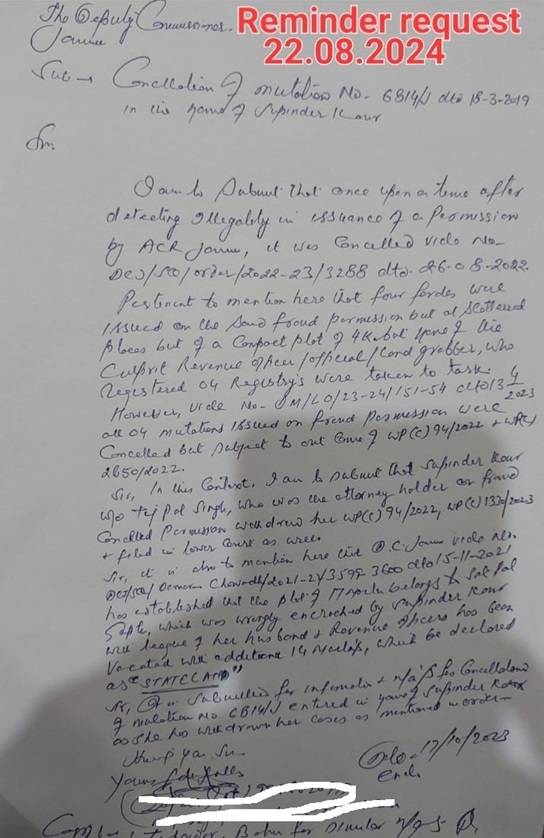 The Deputy Commissioner
Reminder request
22.08.2024
Jammu
Sub→ Cancellation of mutation No- 6814/J dtd 18-3-2019
in the name of Supinder Kour
Sir
I am to Submit that once upon a time after
detecting Illegality in issuance of a Permission
by ACR Jammu, it was Cancelled vide No-
DCJ/SQ/order/2022-23/3288 dtd- 26-08-2022.
Pertinent to mention here that four fardes were
issued on the Said fraud permission but at Scattered
places but of a Compact plot of 4K but None of the
Culprit Revenue officer/official/land grabber, who
Registered 04 Registry's were taken to task.
However, vide No- /23-24/151-54 dtd 2023
all 04 mutations issued on fraud Permission were
Cancelled but Subject to out Come of WP(C) 94/2022 &
2650/2022.
Sir, In this Context, I am to Submit that Supinder Kour
W/o Tej Pal Singh, who was the attorney holder on fraud
Cancelled Permission withdrew her WP(C) 94/2022, WP(C)
+ filed in lower Court as well.
Sir, it is also to mention here that D.C. Jammu vide No.
/2021-22/3592 3600 dtd 15-11-2021
has established that the plot of 17 Marla belongs to Sat Pal
which was wrongly encroached by Supinder Kour
with league of her husband & Revenue officers has been
Vacated with additional 14 Marla's, which be declared
as "STATE LAND"
Sir, is Submitted for information & n/a's for Cancellation
of mutation No 6814/J entered in name of Supinder Kour
as She has withdrawn her cases as mentioned
Thank you Sir-
Yours faithfully
Dtd- 17/10/2023
Encl.
Copy to Bahu for Similar n/a-s